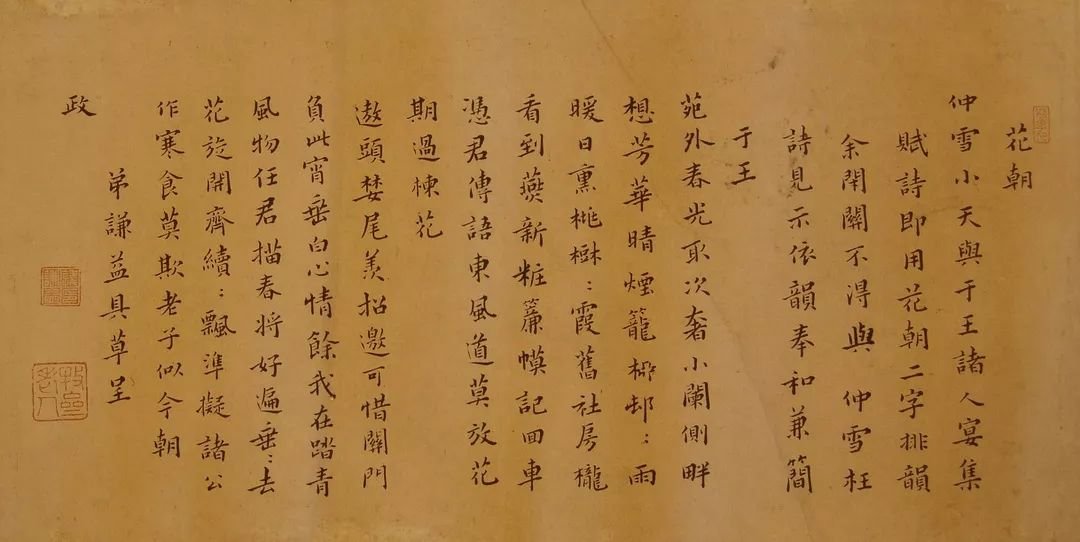 花朝
仲雪小天與于王諸人宴集
賦詩即用花朝二字排韻
余閉關不得與仲雪枉
詩見示依韻奉和兼簡
于王
苑外春光取次奢小闌側畔
想芳華晴煙籠柳邨:雨
暖日熏桃樹:霞舊社房櫳
看到燕新粧簾幙記回車
憑君傳語東風道莫放花
期過楝花
遨頭婪尾羨招邀可惜關門
負此宵垂白心情餘我在踏青
風物任君描春將好遍垂:去
花旋開齊續:飄準擬諸公
作寒食莫欺老子似今朝
弟謙益具草呈
政